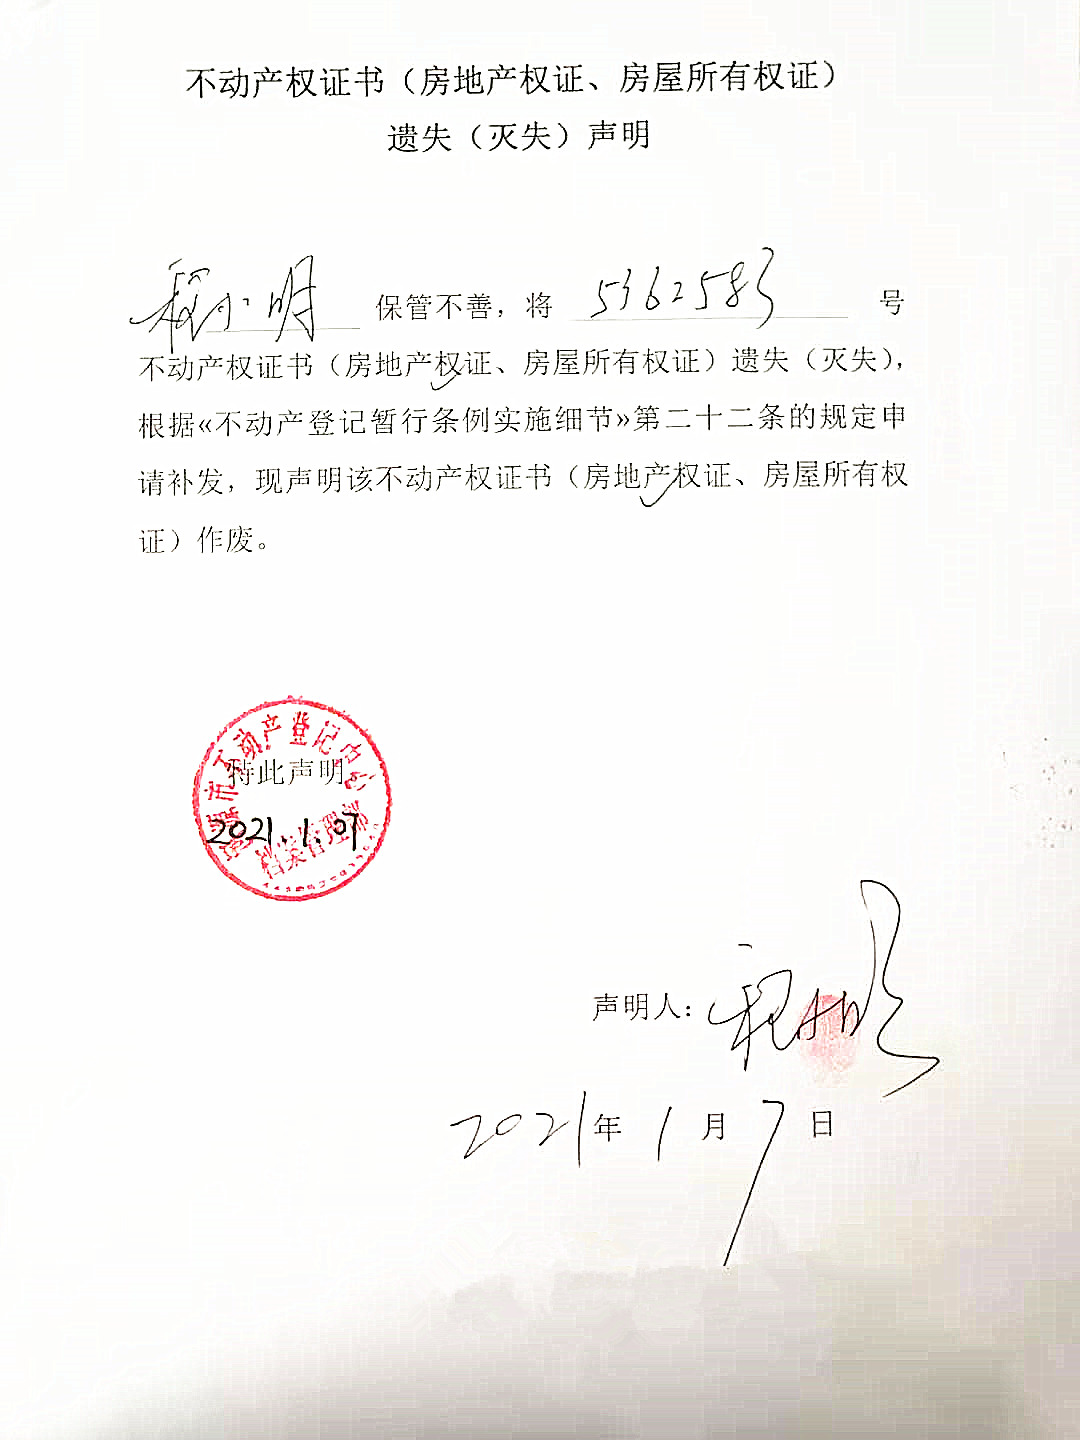 不动产权证书（房地产权证、房屋所有权证）
遗失（灭失）声明
程小明 保管不善，将 5362583 号
不动产权证书（房地产权证、房屋所有权证）遗失（灭失），
根据«不动产登记暂行条例实施细节»第二十二条的规定申
请补发，现声明该不动产权证书（房地产权证、房屋所有权
证）作废。
市不动产登记中心
特此声明
2021.1.07
档案管理部
声明人：程小明
2021年1月7日